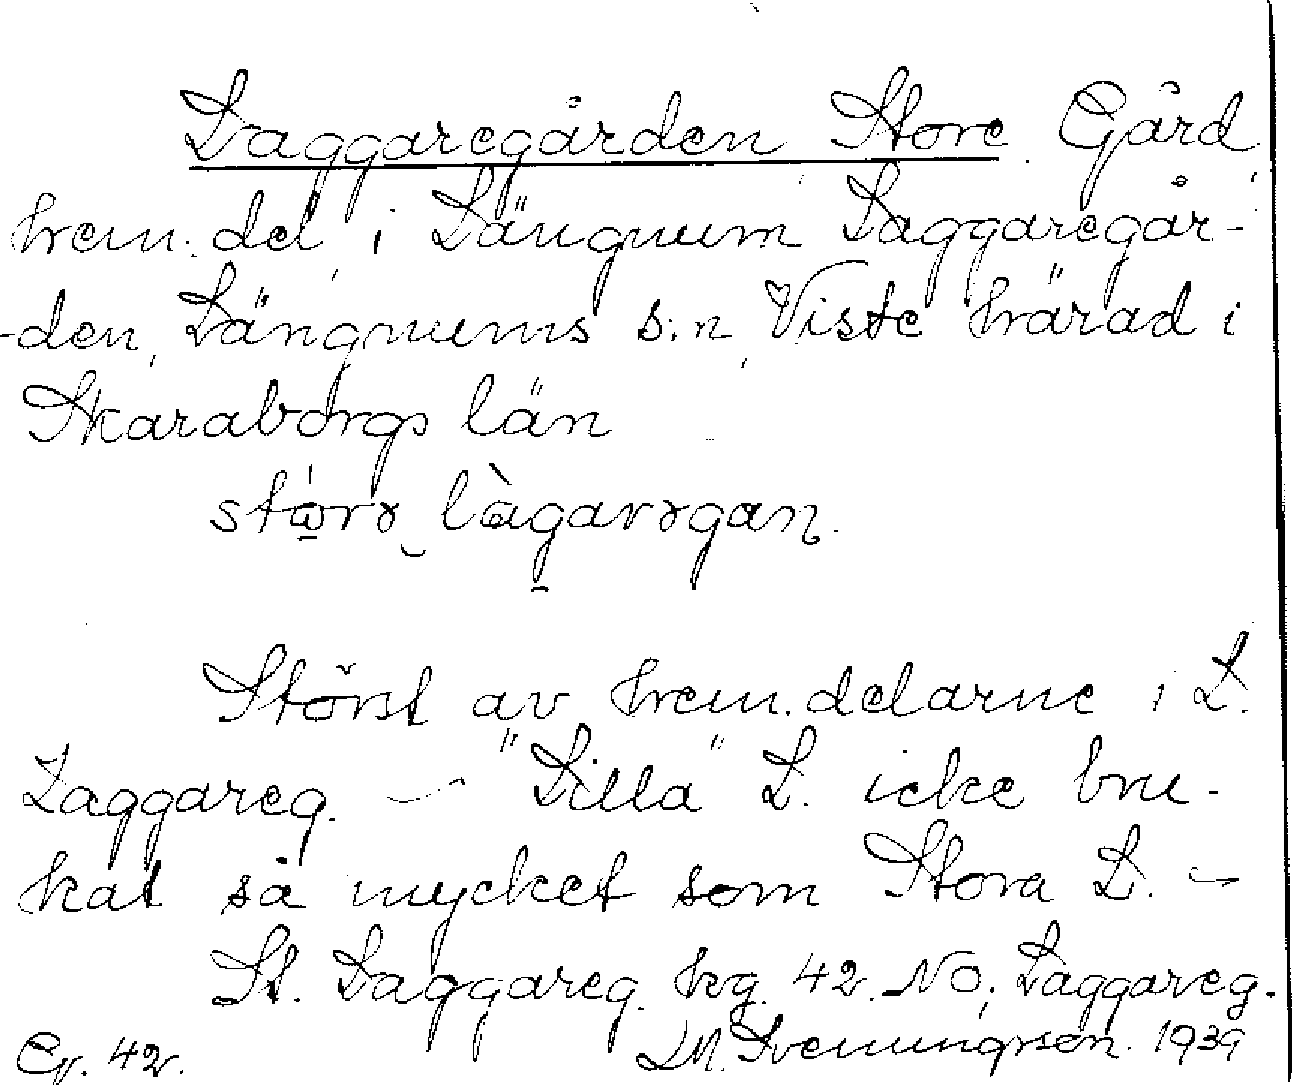 Laggaregården Store Gård
hem. del i Längnum Laggaregår-
-den, Längnums s:n, Viste härad i
Skaraborgs län
Störst av hem.delarne i L.
Laggareg. — "Lilla" L. icke bru-
kat så mycket som Stora L. —
St. Laggareg. hg. 42. NO, Laggareg.
42. M. Svenungsson. 1939